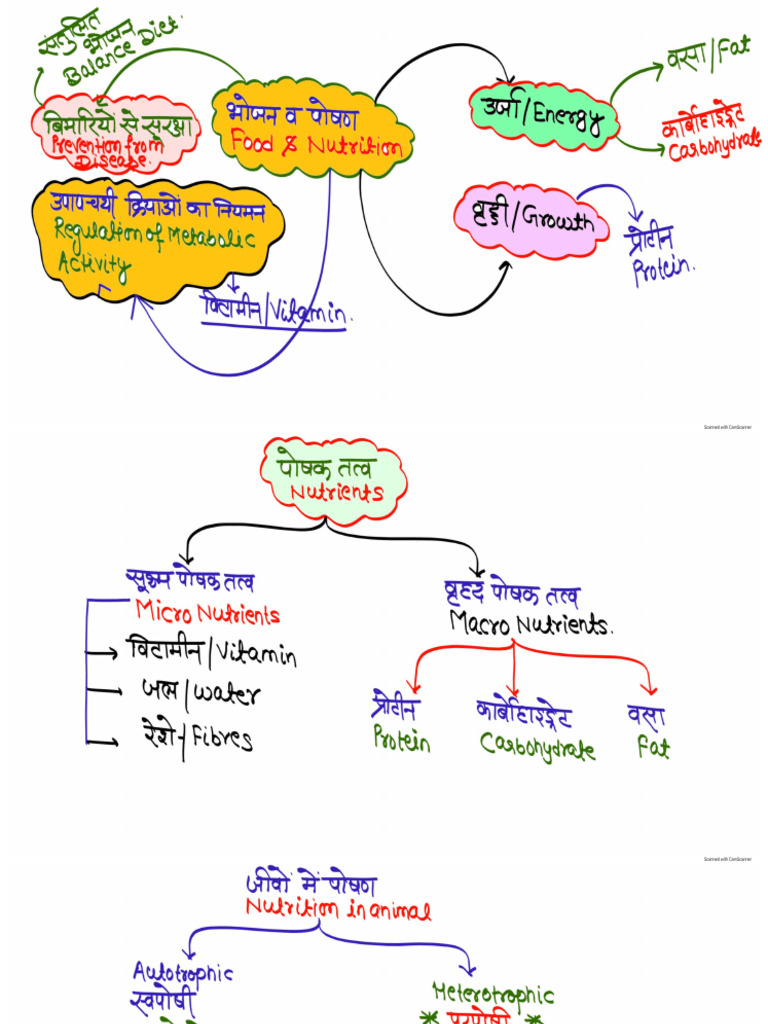 संतुलित
भोजन
Balance Diet.
बिमारियों से सुरक्षा
Prevention from
Disease.
भोजन व पोषण
Food & Nutrition
उर्जा/Energy
वसा/Fat
कार्बोहाइड्रेट
Carbohydrate
उपापचयी क्रियाओं का नियमन
Regulation of Metabolic
Activity
विटामीन/Vitamin.
वृद्दी/Growth
प्रोटीन
Protein.
Scanned with CamScanner
पोषक तत्व
Nutrients
सूक्ष्म पोषक तत्व
Micro Nutrients
विटामीन/Vitamin
जल/Water
रेशे-/Fibres
वृहद पोषक तत्व
Macro Nutrients.
प्रोटीन
Protein
कार्बोहाइड्रेट
Carbohydrate
वसा
Fat
Scanned with CamScanner
जीवों में पोषण
Nutrition in animal
Autotrophic
स्वपोषी
Heterotrophic
* परपोषी *